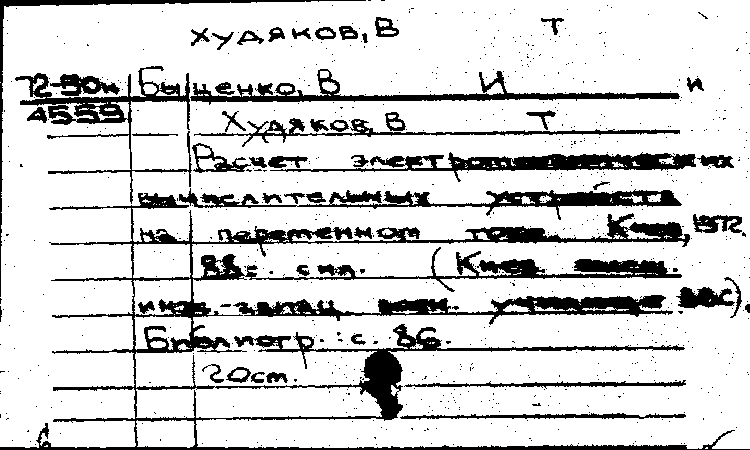 Худяков, В Т
72-50и Быценко, В И и
4559
Худяков, В Т
Расчет
вычислительных устройств
на переменном токе. Киев, 1972.
88с. с ил. (Киев.
учучилище ВВС).
Библиогр.: с. 86.
20см.